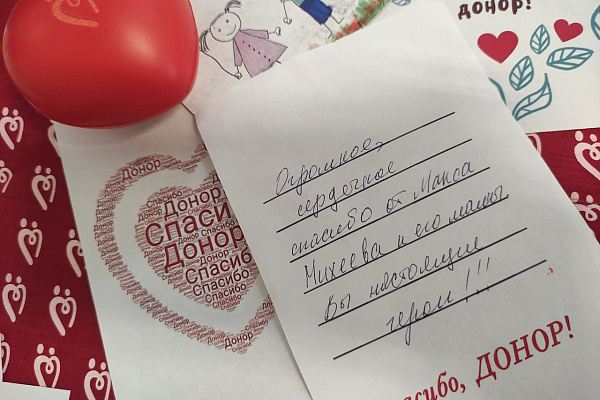 донор!
Огромное,
сердечное
спасибо от Макса
Михеева и его мамы
Вы настоящие
герои!!!
Спасибо, ДОНОР!
Донор
Спасибо
Донор
Спасибо
Донор
Спасибо
Спасибо
Спасибо
Донор